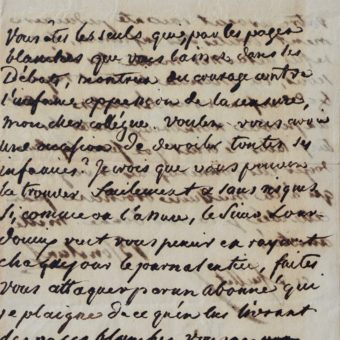 Vous êtes les seuls qui, par les pages
blanches que vous laissez dans les
Débats, montrez du courage contre
l'infame oppression de la censure,
mon cher collègue. Voulez-vous avoir
une occasion de devoiler toutes ses
infamies? Je crois que vous pouvez
la trouver facilement & sans risques
Si, comme on l'assure, le Sieur Lour-
doueix veut vous punir en rayant
chaque jour le journal entier, faites
vous attaquer par un abonné qui
se plaigne de ce qu'en lui livrant
des pages blanches, vous